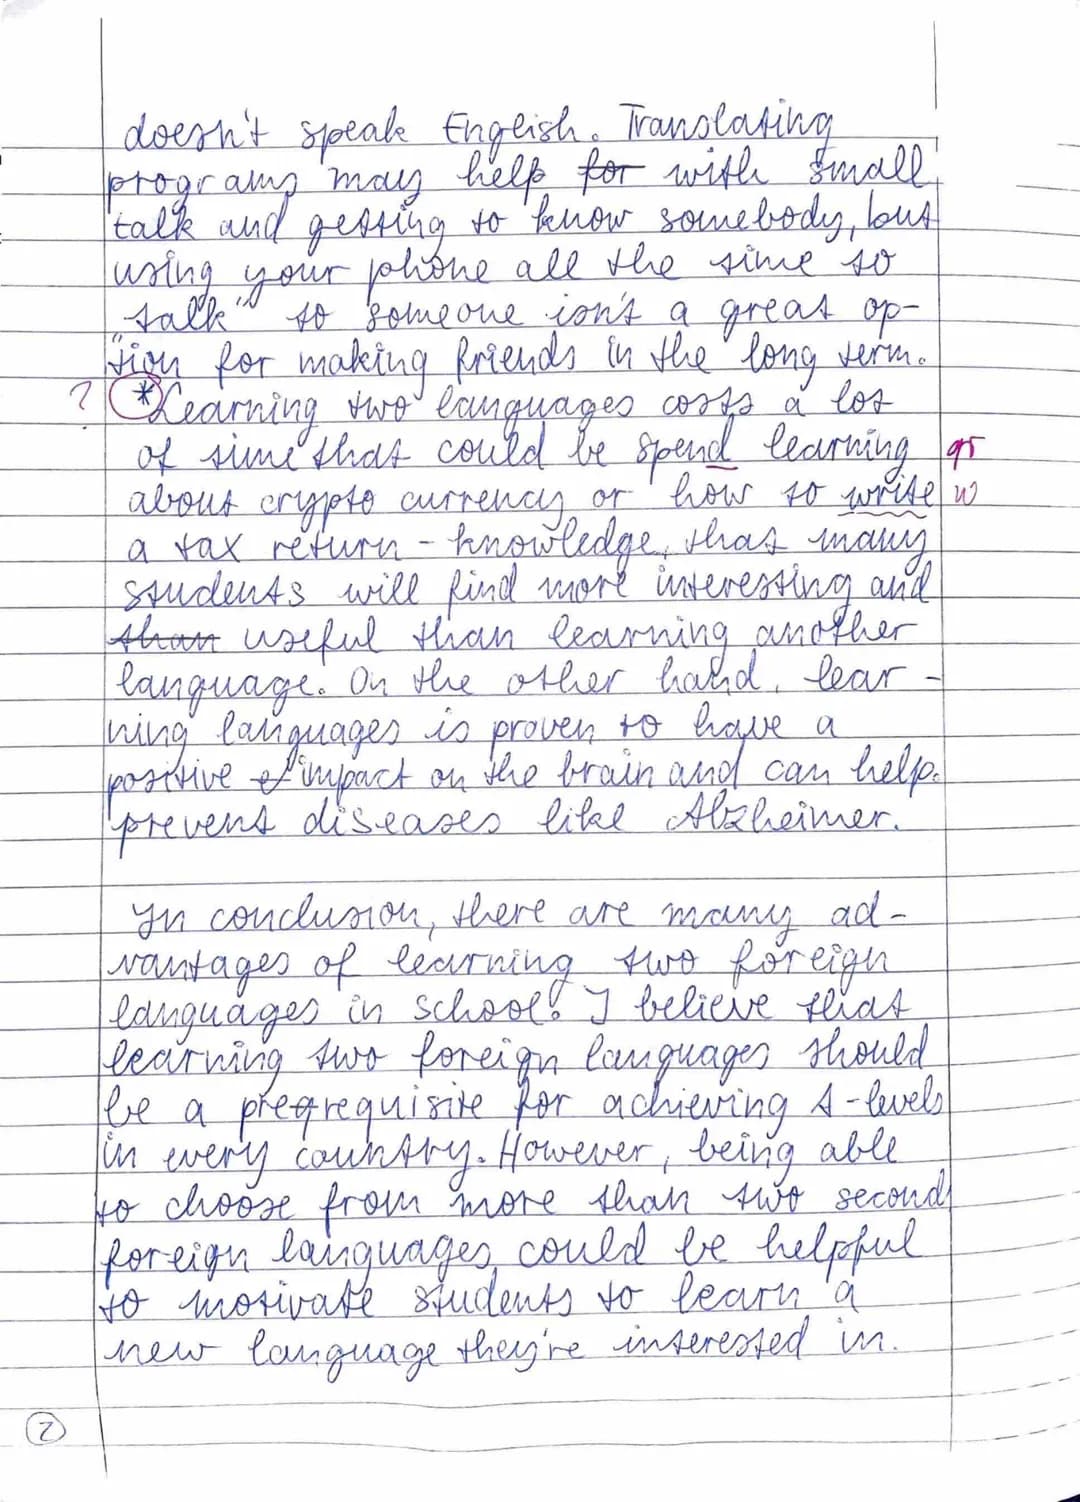 doesn't speak English. Translating
programs may help for with small
talk and getting to know somebody, but
using your phone all the time to
"talk" to someone isn't a great op-
tion for making friends in the long term.
? *Learning two languages costs a lot
of time that could be spend learning gr
about crypto currency or how to write w
a tax return - knowledge, that many
students will find more interesting and
than useful than learning another
language. On the other hand, lear-
ning languages is proven to have a
positive impact on the brain and can help
prevent diseases like Alzheimer.
In conclusion, there are many ad-
vantages of learning two foreign
languages in school. I believe that
learning two foreign languages should
be a preqrequisite for achieving A-levels
in every country. However, being able
to choose from more than two second
foreign languages could be helpful
to motivate students to learn a
new language they're interested in.
2